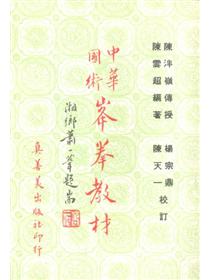 陳泮嶺傳授 楊宗鼎
陳雲超編著 陳天一 校訂
中華
國術
峯拳教材
湘鄉蕭一葦題耑
真善美出版社印行